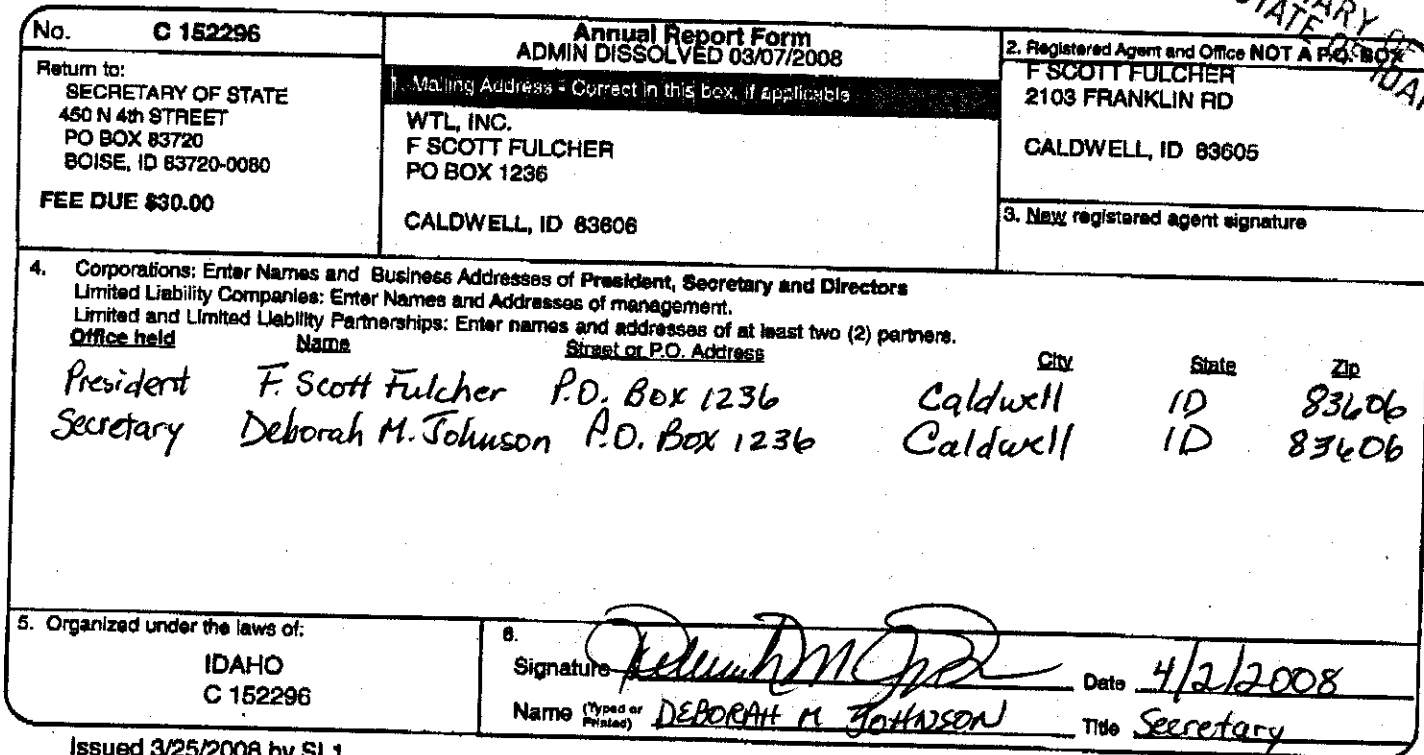 No. C 152296
Return to:
SECRETARY OF STATE
450 N 4th STREET
PO BOX 83720
BOISE, ID 83720-0080
FEE DUE $30.00
Annual Report Form
ADMIN DISSOLVED 03/07/2008
1. Mailing Address - Correct in this box, if applicable
WTL, INC.
F SCOTT FULCHER
PO BOX 1236
CALDWELL, ID 83606
STATE OF
2. Registered Agent and Office NOT A P.O. BOX
F SCOTT FULCHER
2103 FRANKLIN RD
CALDWELL, ID 83605
3. New registered agent signature
4. Corporations: Enter Names and Business Addresses of President, Secretary and Directors
Limited Liability Companies: Enter Names and Addresses of management.
Limited and Limited Liability Partnerships: Enter names and addresses of at least two (2) partners.
Office held Name Street or P.O. Address City State Zip
President F. Scott Fulcher P.O. Box 1236 Caldwell ID 83606
Secretary Deborah M. Johnson P.O. Box 1236 Caldwell ID 83606
5. Organized under the laws of:
IDAHO
C 152296
6.
Signature Date 4/2/2008
Name (Typed or Printed) DEBORAH M JOHNSON Title Secretary
Issued 3/25/2008 by SL1